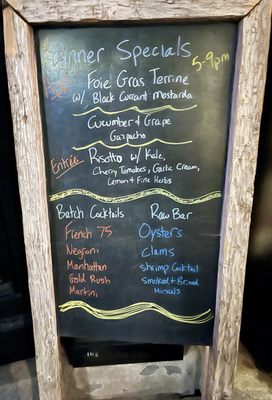 Dinner Specials
5-9pm
Foie Gras Terrine
w/ Black Currant Mostarda
Cucumber & Grape
Gazpacho
Entrée
Risotto w/ Kale,
Cherry Tomatoes, Garlic Cream,
Lemon & Fine Herbs
Batch Cocktails
French 75
Negroni
Manhattan
Gold Rush
Martini
Raw Bar
Oysters
Clams
Shrimp Cocktail
Smoked & Brined
Mussels